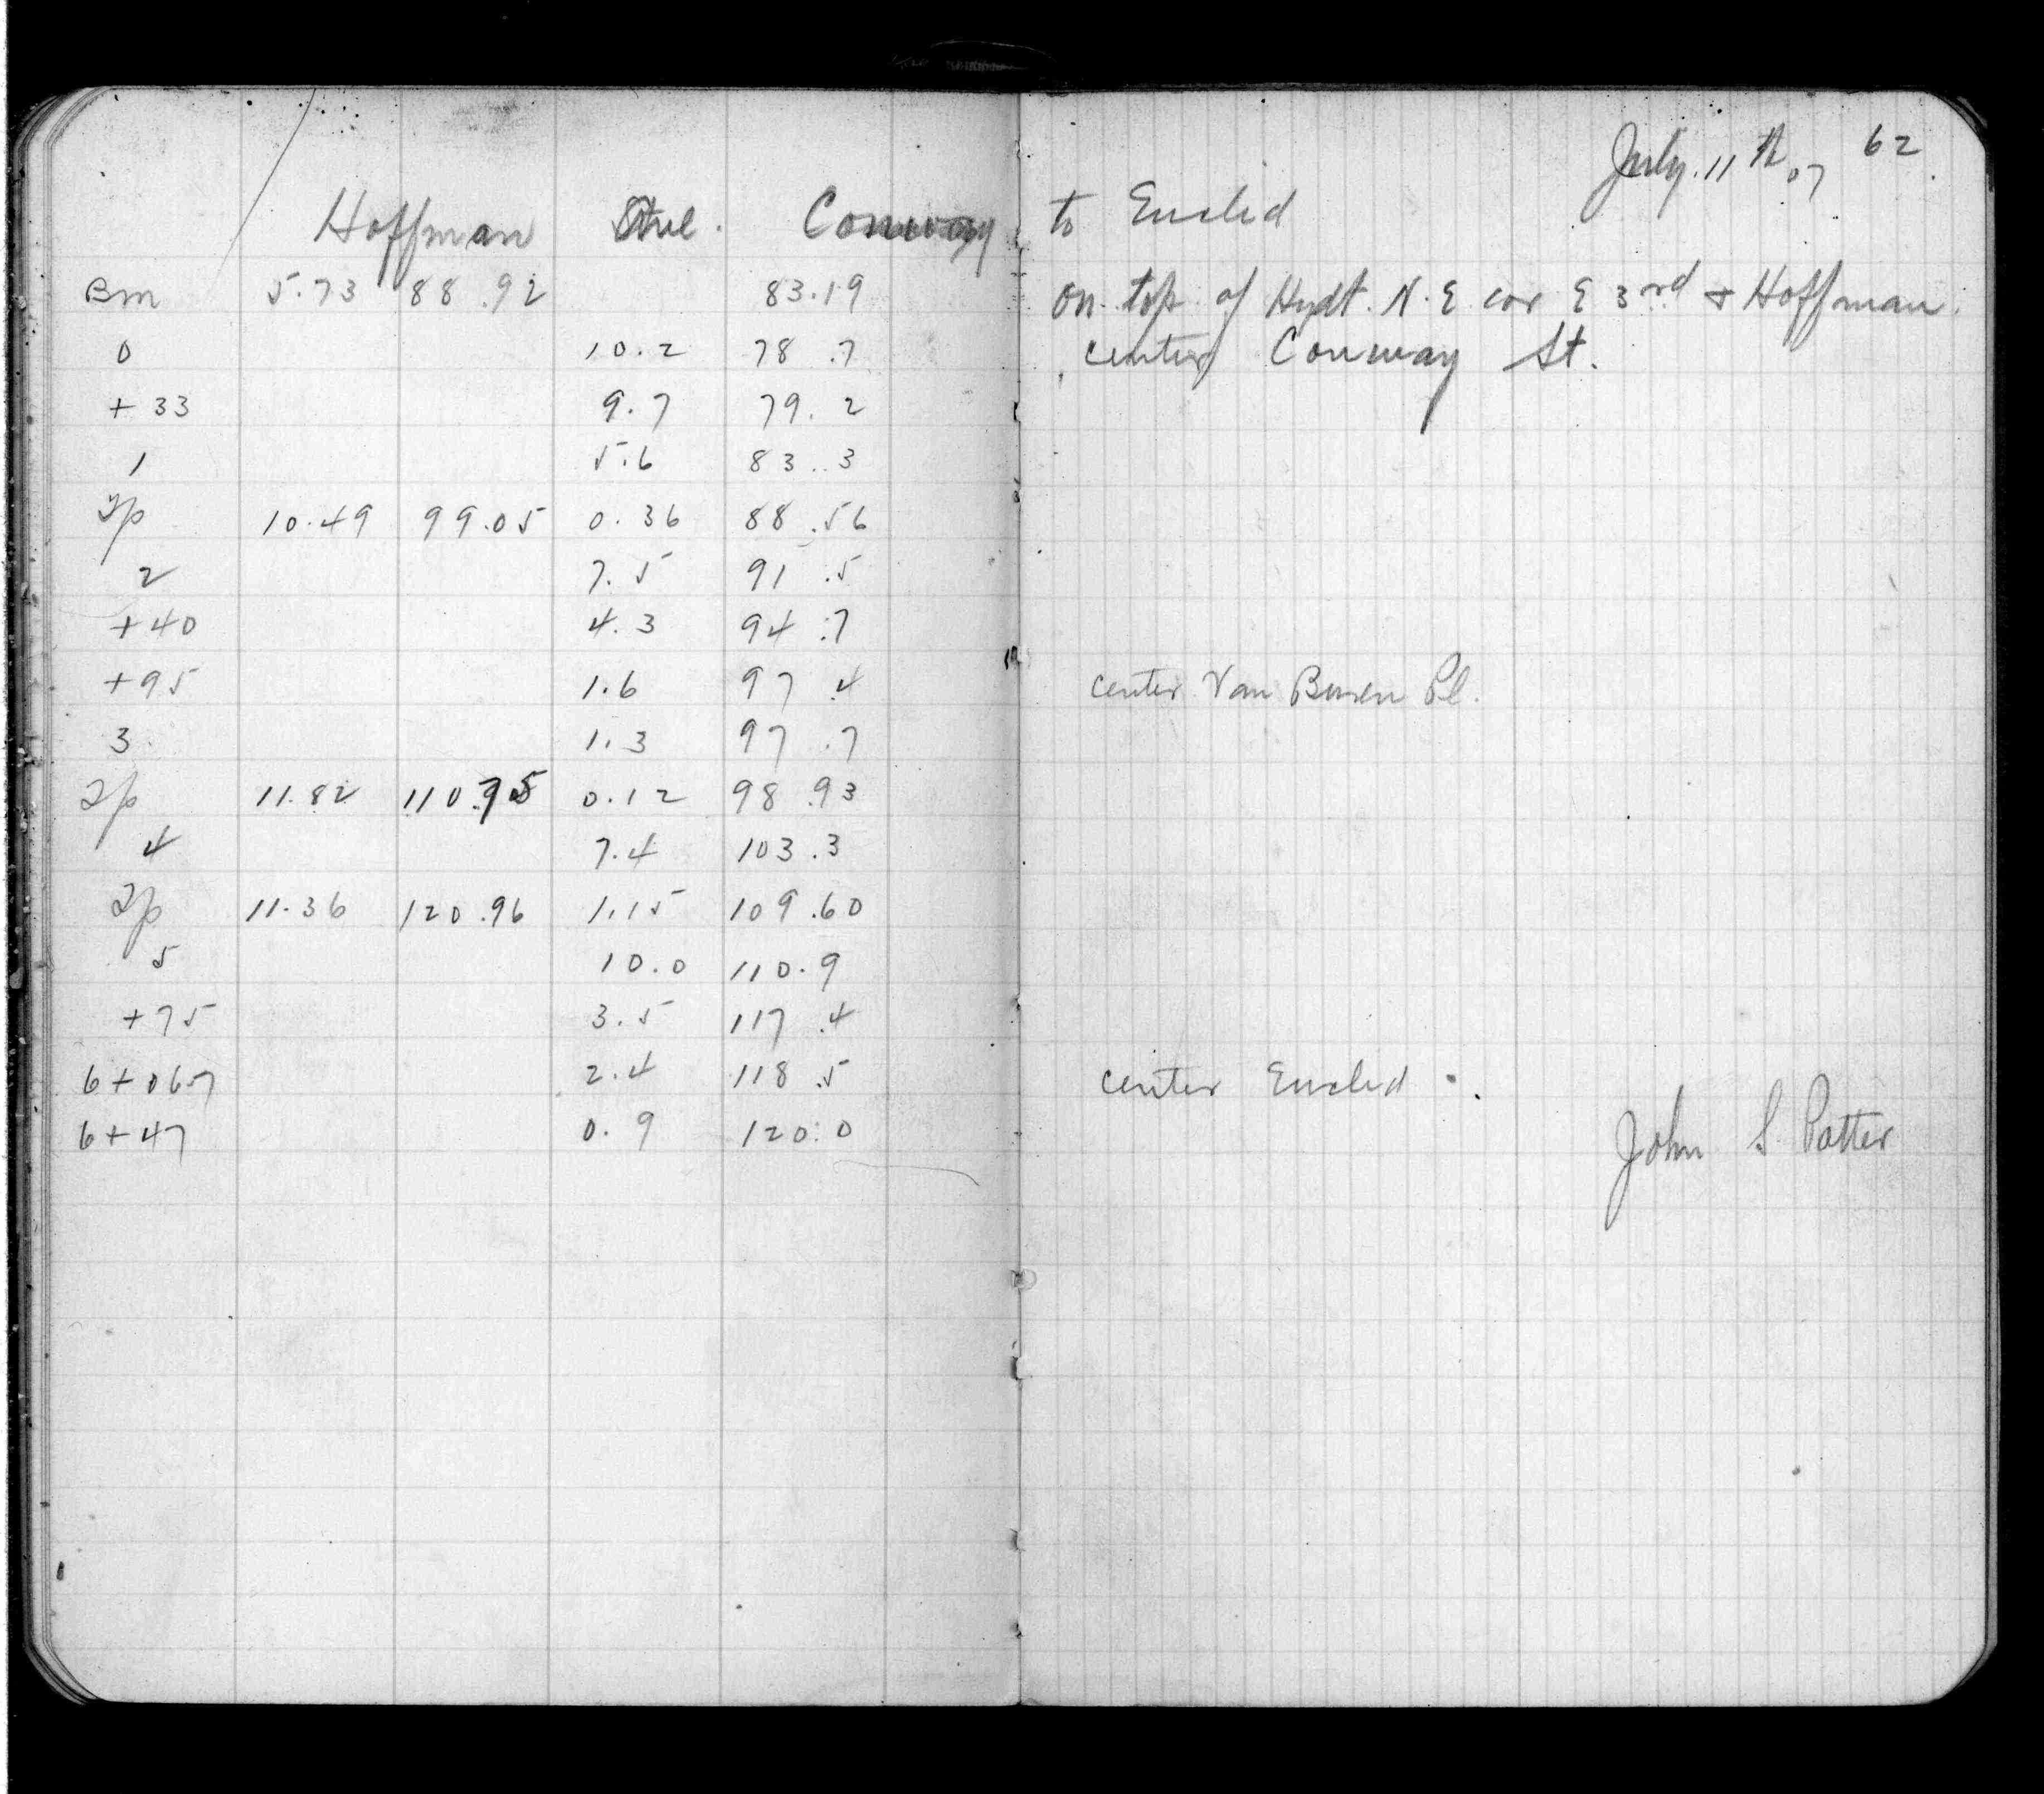 July. 11th 07 62
Hoffman Ave. Conway to Euclid
Bm 5.73 88.92 83.19 on top of Hydt. N.E cor E 3rd + Hoffman.
0 10.2 78.7 center Conway St.
+33 9.7 79.2
1 5.6 83.3
Tp 10.49 99.05 0.36 88.56
2 7.5 91.5
+40 4.3 94.7
+95 1.6 97.4 center Van Buren Pl.
3 1.3 97.7
Tp 11.82 110.75 0.12 98.93
4 7.4 103.3
Tp 11.36 120.96 1.15 109.60
5 10.0 110.9
+75 3.5 117.4
6+067 2.4 118.5 center Euclid.
6+47 0.9 120.0 John S Potter